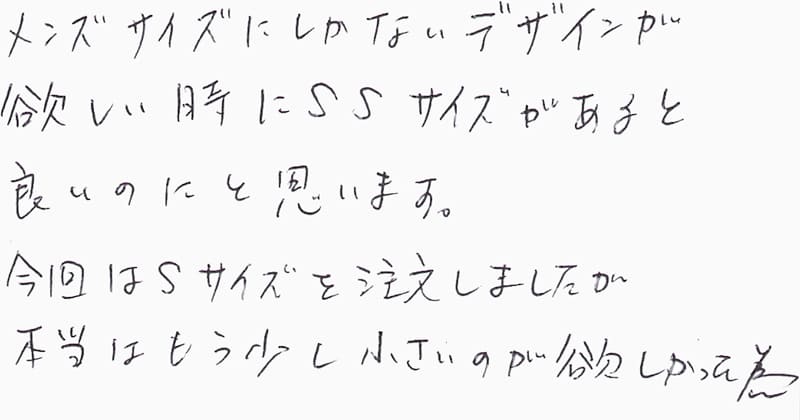 メンズサイズにしかないデザインが
欲しい時にSSサイズがあると
良いのにと思います。
今回はSサイズを注文しましたが
本当はもう少し小さいのが欲しかった為